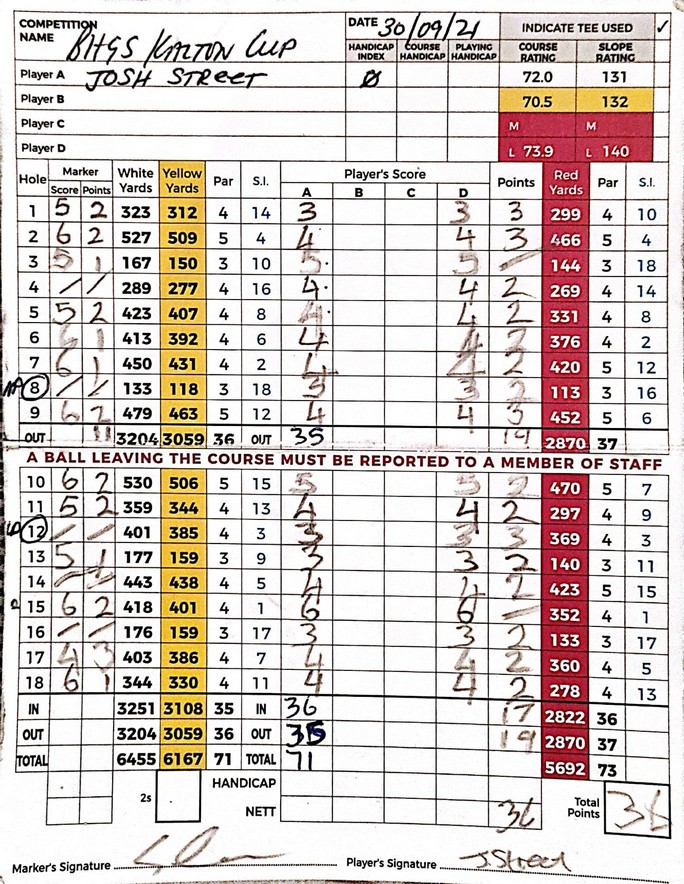 COMPETITION NAME BIIGS KALTON CUP DATE 30/09/21 INDICATE TEE USED ✓
HANDICAP INDEX COURSE HANDICAP PLAYING HANDICAP COURSE RATING SLOPE RATING
Player A JOSH STREET Ø 72.0 131
Player B 70.5 132
Player C M M
Player D L 73.9 L 140
Hole Marker White Yards Yellow Yards Par S.I. Player's Score Points Red Yards Par S.I.
Score Points A B C D
1 5 2 323 312 4 14 3 3 3 299 4 10
2 6 2 527 509 5 4 4 4 3 466 5 4
3 5 1 167 150 3 10 5 5 / 144 3 18
4 / / 289 277 4 16 4 4 2 269 4 14
5 5 2 423 407 4 8 4 4 2 331 4 8
6 6 1 413 392 4 6 4 4 2 376 4 2
7 6 1 450 431 4 2 4 4 2 420 5 12
8 / / 133 118 3 18 3 3 2 113 3 16
9 6 2 479 463 5 12 4 4 3 452 5 6
OUT 11 3204 3059 36 OUT 35 19 2870 37
A BALL LEAVING THE COURSE MUST BE REPORTED TO A MEMBER OF STAFF
10 6 2 530 506 5 15 5 5 2 470 5 7
11 5 2 359 344 4 13 4 4 2 297 4 9
12 / / 401 385 4 3 3 3 3 369 4 3
13 5 1 177 159 3 9 3 3 2 140 3 11
14 / / 443 438 4 5 4 4 2 423 5 15
15 6 2 418 401 4 1 6 6 / 352 4 1
16 / / 176 159 3 17 3 3 2 133 3 17
17 4 3 403 386 4 7 4 4 2 360 4 5
18 6 1 344 330 4 11 4 4 2 278 4 13
IN 3251 3108 35 IN 36 17 2822 36
OUT 3204 3059 36 OUT 35 19 2870 37
TOTAL 6455 6167 71 TOTAL 71 5692 73
2s HANDICAP
NETT 36 Total Points 36
Marker's Signature Player's Signature J.Street